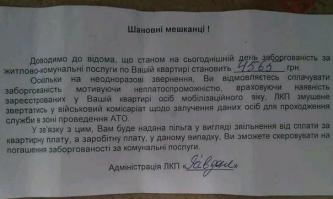 Шановні мешканці !
Доводимо до відома, що станом на сьогоднішній день заборгованість за
житлово-комунальні послуги по Вашій квартирі становить 4563 грн.
Оскільки на неодноразові звернення, Ви відмовляєтесь сплачувати
заборгованість мотивуючи неплатоспроможністю, враховуючи наявність
зареєстрованих у Вашій квартирі осіб мобілізаційного віку, ЛКП змушене
звертатись у військовий комісаріат щодо залучення даних осіб для проходження
служби в зоні проведення АТО.
У зв'язку з цим, Вам буде надана пільга у вигляді звільнення від сплати за
квартирну плату, а заробітну плату, у даному випадку, Ви зможете скеровувати на
погашення заборгованості за комунальні послуги.
Адміністрація ЛКП